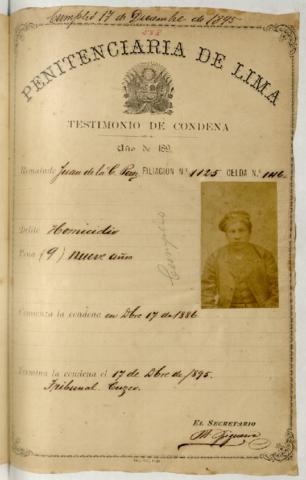 Cumplió 17 de Diciembre de 1895
PENITENCIARIA DE LIMA
TESTIMONIO DE CONDENA
Año de 189
Rematado Juan de la C. Paz FILIACION N.° 1125 CELDA N.° 146
Delito Homicidio
Pena (9) nueve años
Cumplió
Comienza la condena en Dbre 17 de 1886
Termina la condena el 17 de Dbre de 1895.
Tribunal Cuzco.
EL SECRETARIO